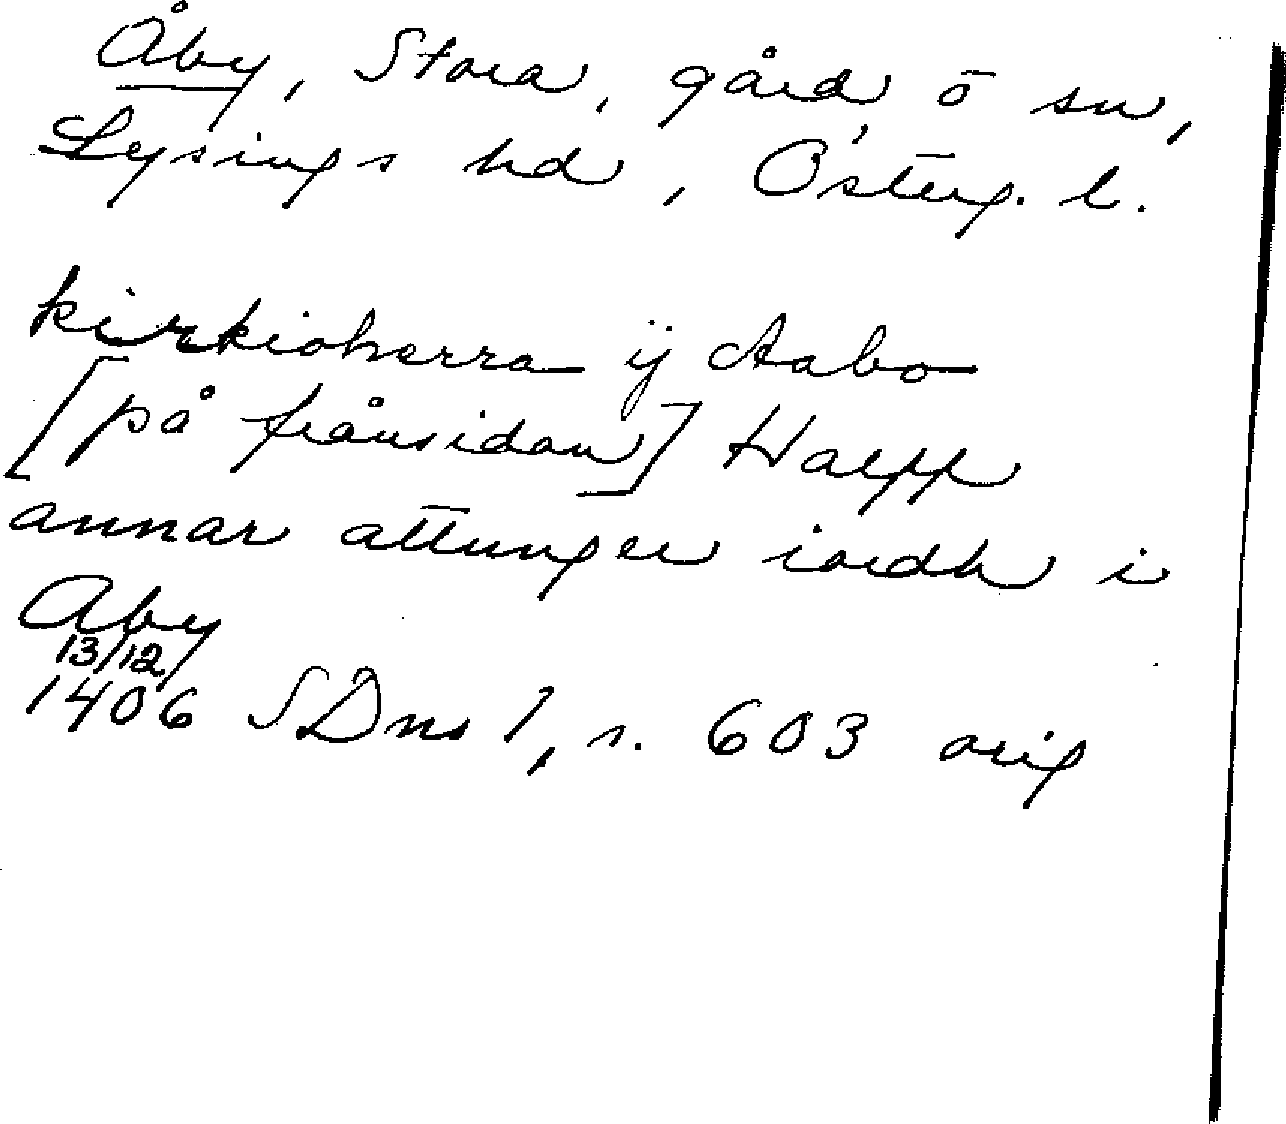 Åby, Stora, gård, ō sn,
Lysings hd, Österg. l.
kirkioherra ij Aabo
[på frånsidan] Halff
annar attunger iordh i
Aby
13/12
1406 SDns 1, s. 603 orig